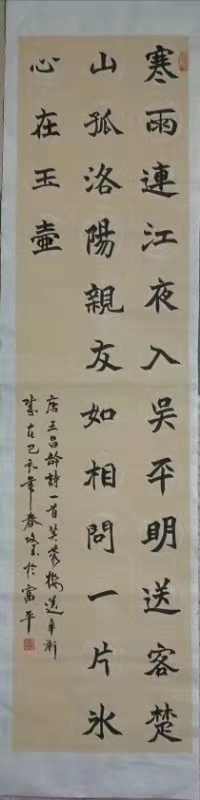 寒雨連江夜入吳平明送客楚
山孤洛陽親友如相問一片氷
心在玉壺
唐王昌齡詩一首芙蓉樓送辛漸
歲在己亥年春於富平